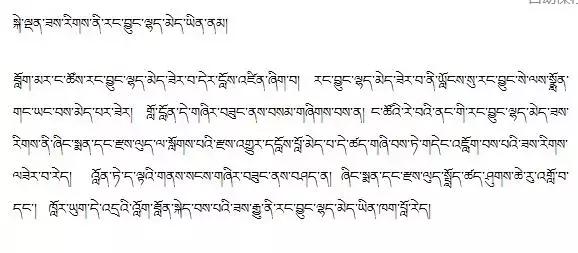 སྐྱེ་ལྡན་ཟས་རིགས་ནི་རང་བྱུང་ལྷད་མེད་ཡིན་ནམ།
རྟོག་མར་ང་ཚོས་རང་བྱུང་ལྷད་མེད་ཟེར་བ་དེར་ངོས་འཛིན་ཞིག་བྱ། རང་བྱུང་ལྷད་མེད་ཟེར་བ་ནི་ཡོངས་སུ་རང་བྱུང་སེ་ལས་སྣོན་
གང་ཡང་བས་མེད་པར་ཟེར། གློ་དོན་དེ་གཞིར་བཟུང་ནས་བསམ་གཞིགས་བས་ན། ང་ཚོའི་རེ་བའི་ནང་གི་རང་བྱུང་ལྷད་མེད་ཟས་
རིགས་ནི་ཞིང་སྨན་དང་རྫས་ལུད་ལ་སོགས་པའི་རྫས་འགྱུར་དངོས་པོ་མེད་པ་དེ་ཚད་གཞི་བས་ཏེ་གདེང་འཇོག་བས་པའི་ཟས་རིགས་
ལ་ཟེར་བ་རེད། འོན་ཏེ་ད་ལྟའི་གནས་སངས་གཞིར་བཟུང་ནས་བཤད་ན། ཞིང་སྨན་དང་རྫས་ལུད་སྤྱོད་ཚད་ཤུགས་ཆེ་རུ་འགྲོ་བ་
དང་། ཁོར་ཡུག་དེ་འདྲའི་འོག་རྟོན་སྐྱེད་བས་པའི་ཟས་རྒྱུ་ནི་རང་བྱུང་ལྷད་མེད་ཡིན་ཁག་པོ་རེད།